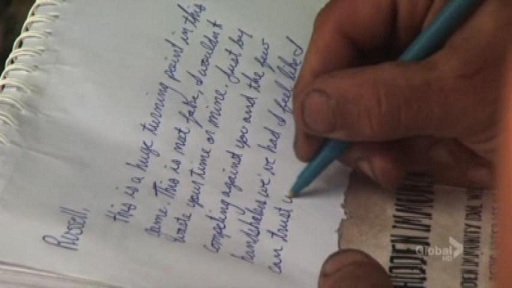 Russell,
this is a huge turning point in this
game. This is not fake, I wouldn't
waste your time or mine. Just by
competing against you and the few
handshakes we've had I feel like I
can trust
HIDDEN IMMUN
DDEN IMMUNITY IDOL
Global
HD